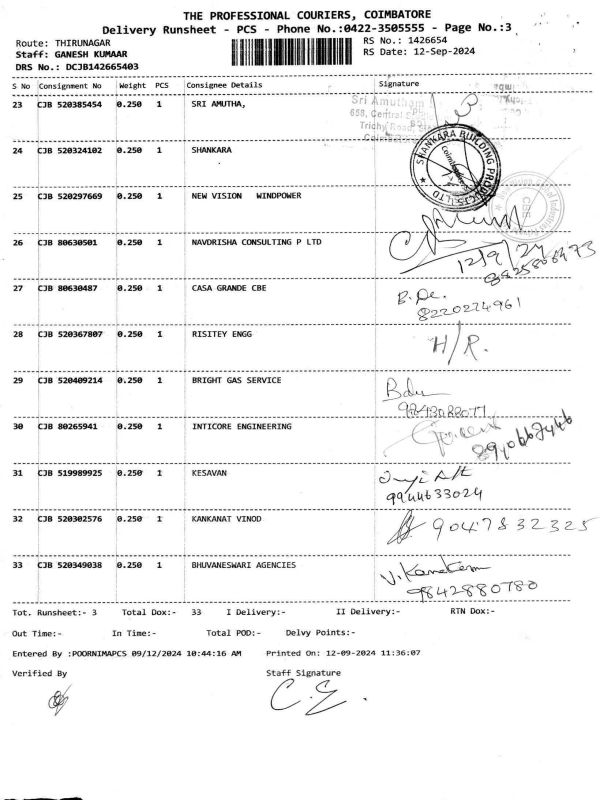 THE PROFESSIONAL COURIERS, COIMBATORE
Delivery Runsheet - PCS - Phone No.:0422-3505555 - Page No.:3
Route: THIRUNAGAR RS No.: 1426654
Staff: GANESH KUMAAR RS Date: 12-Sep-2024
DRS No.: DCJB142665403
S No Consignment No Weight PCS Consignee Details Signature
23 CJB 520385454 0.250 1 SRI AMUTHA,
Sri Amutham
658, Central
Trichy Road,
24 CJB 520324102 0.250 1 SHANKARA
SHANKARA BUILDING PRODUCTS LTD
Coimbatore
25 CJB 520297669 0.250 1 NEW VISION WINDPOWER
CBE
26 CJB 80630501 0.250 1 NAVDRISHA CONSULTING P LTD
12/9/24
27 CJB 80630487 0.250 1 CASA GRANDE CBE
B. De.
8220274961
28 CJB 520367807 0.250 1 RISITEY ENGG
H/R.
29 CJB 520409214 0.250 1 BRIGHT GAS SERVICE
30 CJB 80265941 0.250 1 INTICORE ENGINEERING
31 CJB 519989925 0.250 1 KESAVAN
9944633024
32 CJB 520302576 0.250 1 KANKANAT VINOD
9047832325
33 CJB 520349038 0.250 1 BHUVANESWARI AGENCIES
9842880780
Tot. Runsheet:- 3 Total Dox:- 33 I Delivery:- II Delivery:- RTN Dox:-
Out Time:- In Time:- Total POD:- Delvy Points:-
Entered By :POORNIMAPCS 09/12/2024 10:44:16 AM Printed On: 12-09-2024 11:36:07
Verified By Staff Signature